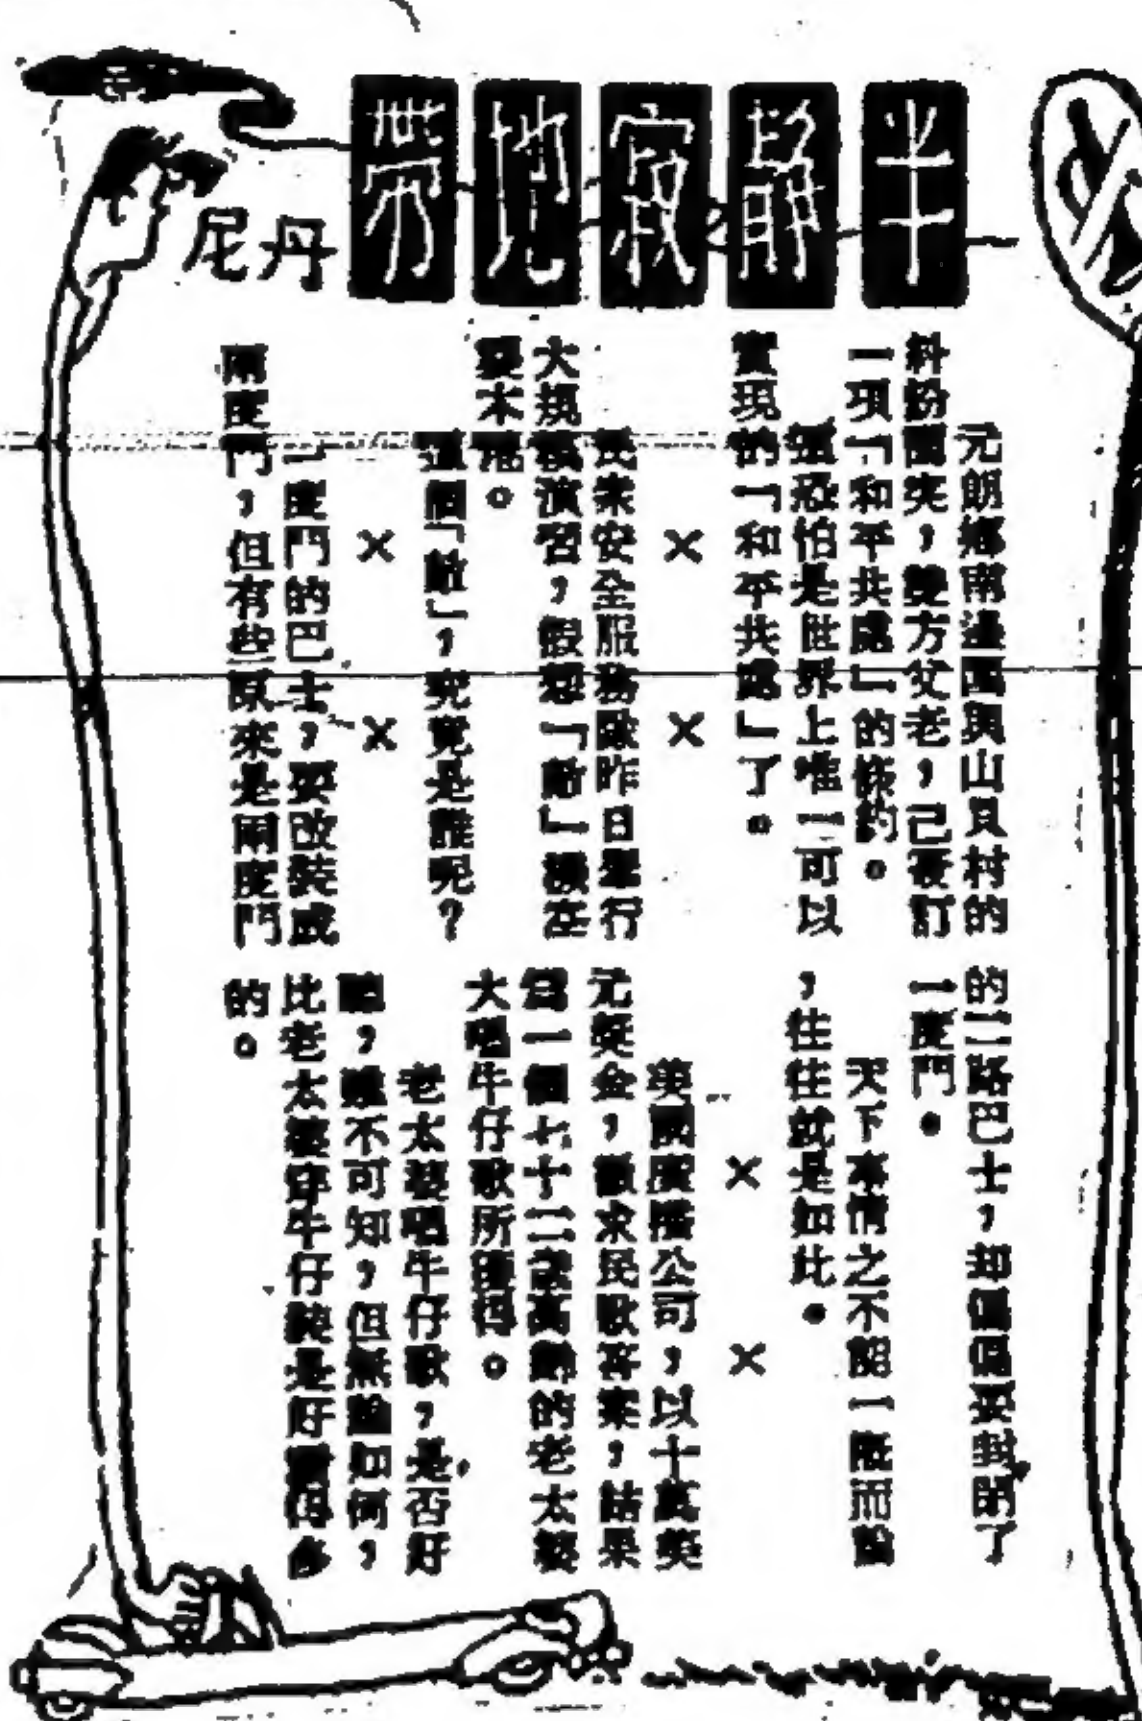 半靜寂地帶
丹尼
元朗鄉南邊圍與山貝村的
糾紛衝突，雙方父老，己簽訂
一項「和平共處」的條約。
這恐怕是世界上唯一可以
實現的「和平共處」了。
× ×
民眾安全服務隊昨日舉行
大規模演習，假想「敵」機在
襲木屋。
這個「敵」，究竟是誰呢？
× ×
一度門的巴士，要改裝成
兩度門，但有些原來是兩度門
的二路巴士，却偏偏要封閉了
一度門。
天下事情之不能一概而論
，往往就是如此。
× ×
英國廣播公司，以十萬英
元獎金，徵求民歌答案，結果
為一個七十二歲高齡的老太婆
大唱牛仔歌所獲得。
老太婆唱牛仔歌，是否好
聽，雖不可知，但無論如何，
比老太婆穿牛仔褲是好看得多
的。